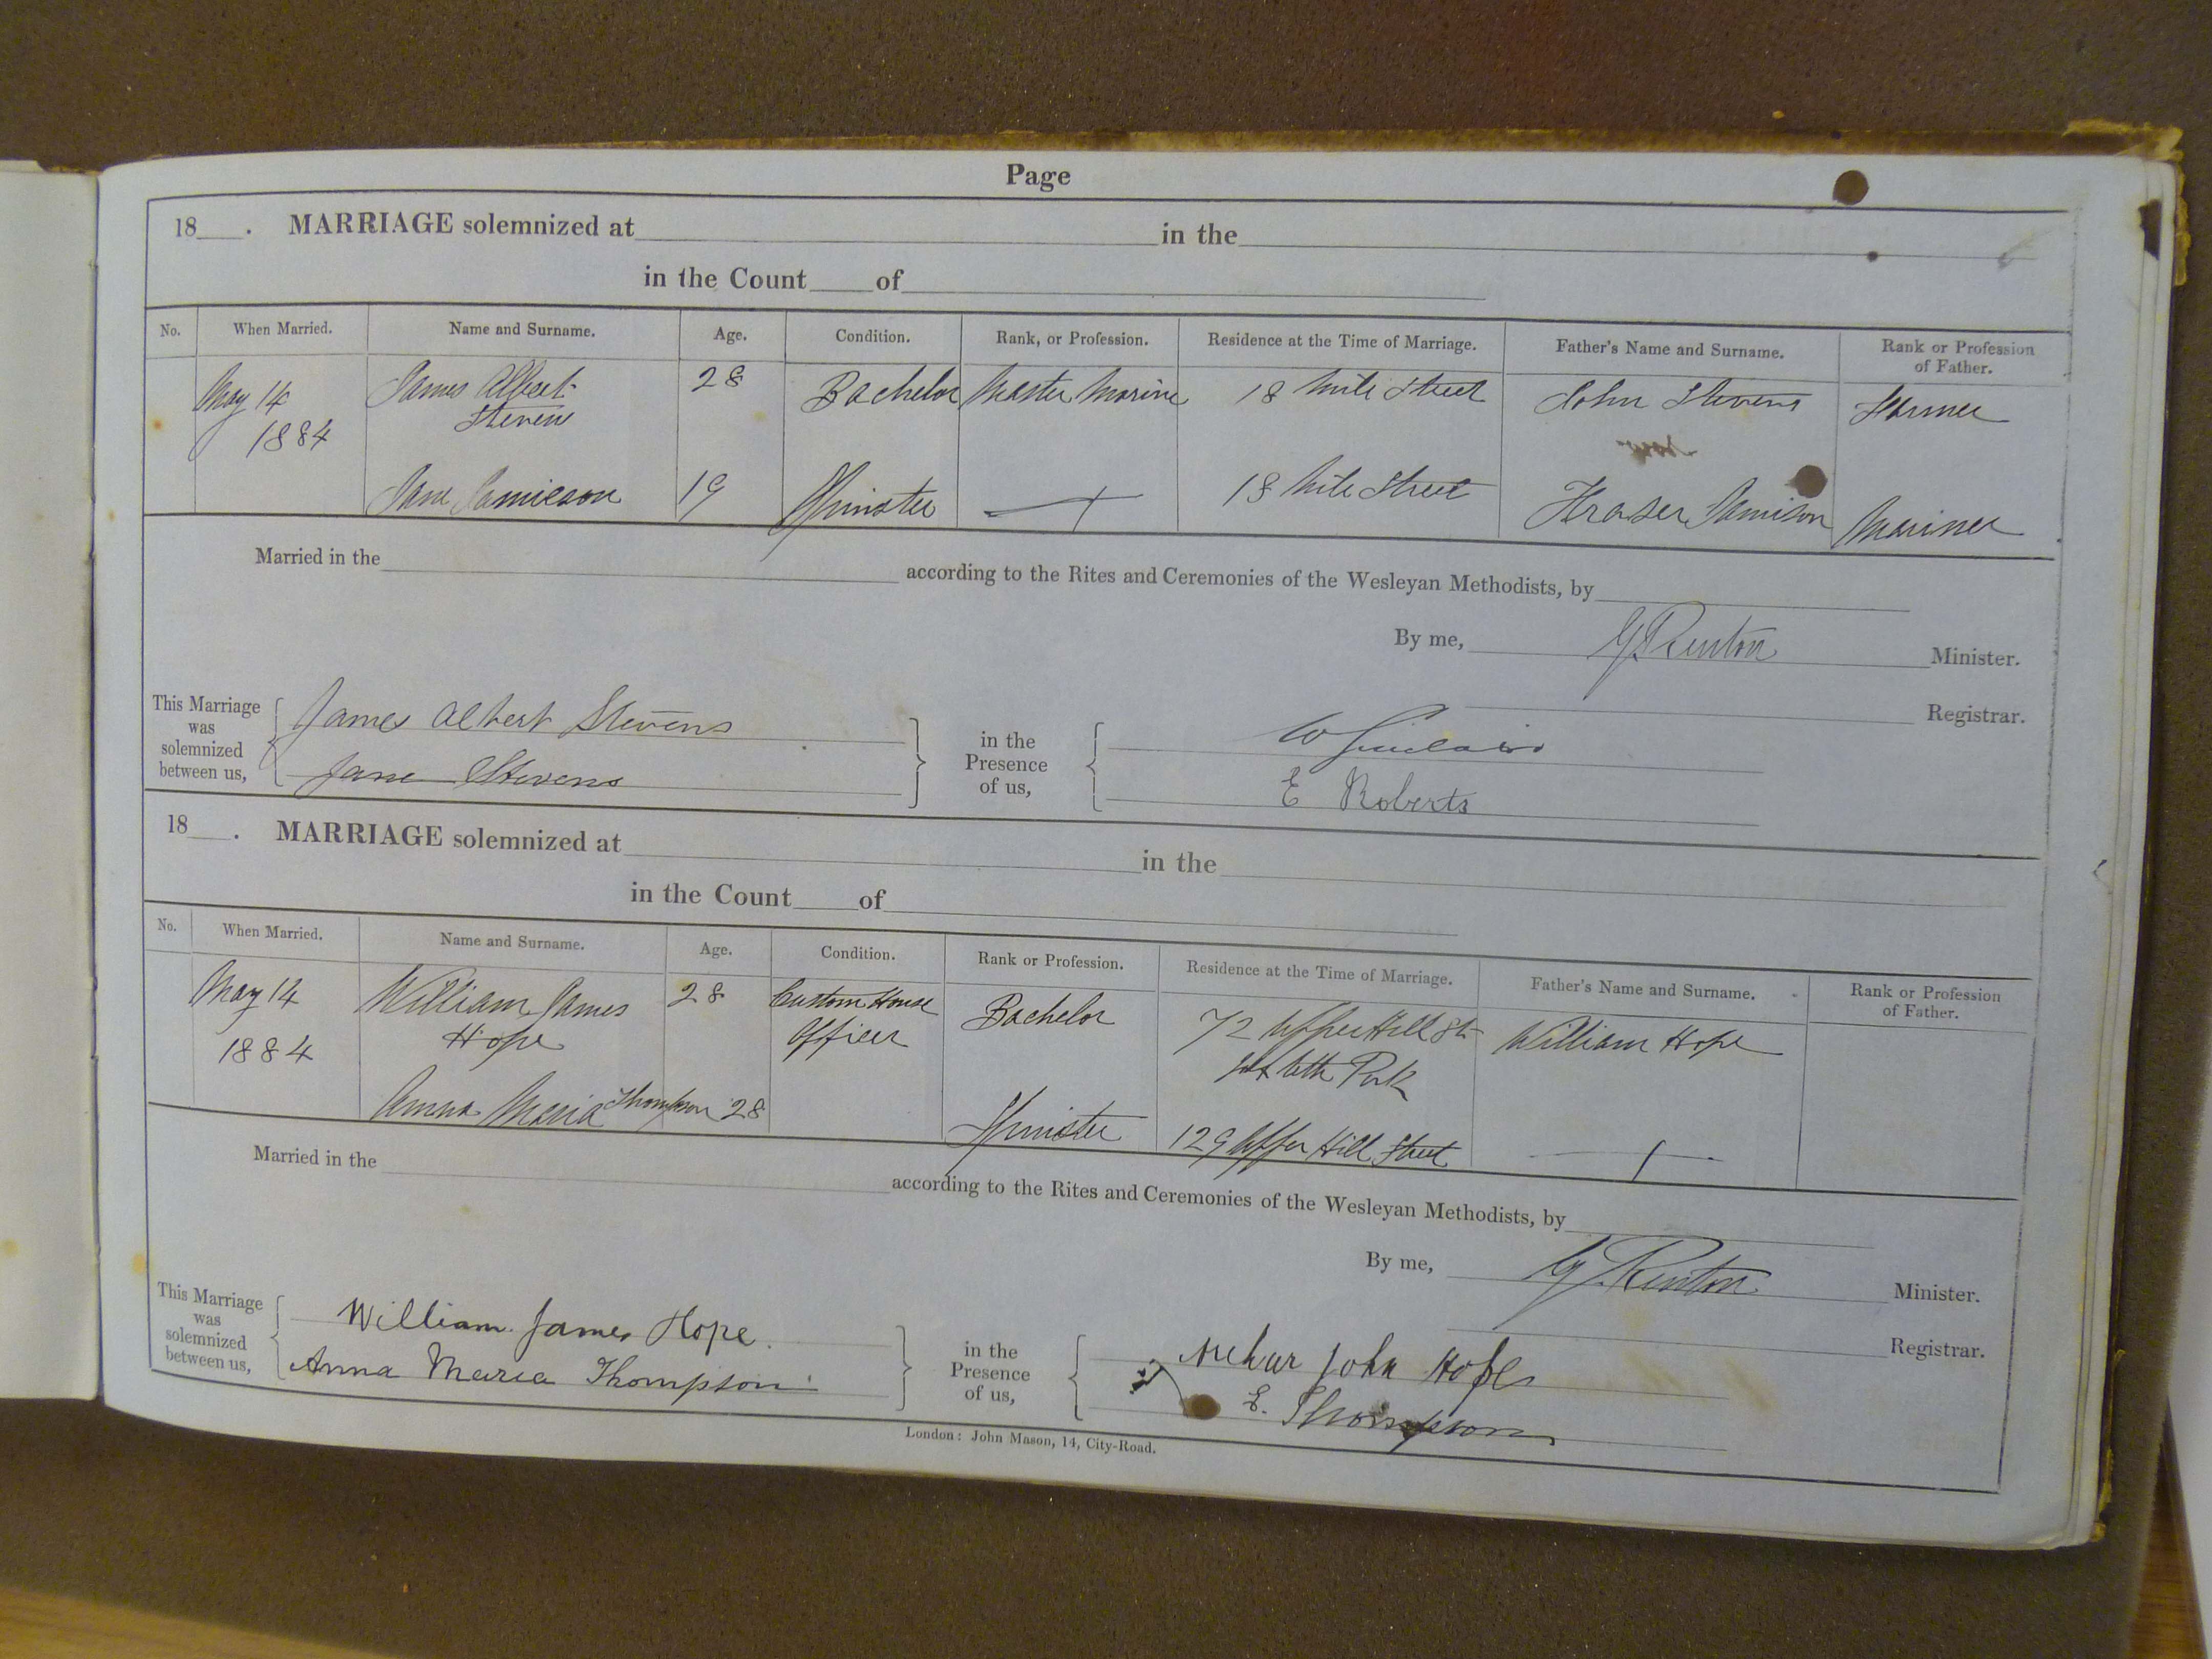 Page
18 . MARRIAGE solemnized at in the
in the Count of
No. When Married. Name and Surname. Age. Condition. Rank, or Profession. Residence at the Time of Marriage. Father's Name and Surname. Rank or Profession of Father.
May 14 James Albert 28 Bachelor Master Marine 18 Mile Street John Stevens Farmer
1884 Stevens
Jane Jamieson 19 Spinster 18 Mile Street Fraser Jamison Mariner
Married in the according to the Rites and Ceremonies of the Wesleyan Methodists, by
By me, G Renton Minister.
Registrar.
This Marriage was solemnized between us, James Albert Stevens
Jane Stevens
in the Presence of us, W Sinclair
E Roberts
18 . MARRIAGE solemnized at in the
in the Count of
No. When Married. Name and Surname. Age. Condition. Rank or Profession. Residence at the Time of Marriage. Father's Name and Surname. Rank or Profession of Father.
May 14 William James 28 Custom House Bachelor 72 Upper Hill St William Hope
1884 Hope Officer Park
Anna Maria Thompson 28 Spinster 129 Upper Hill Street
Married in the according to the Rites and Ceremonies of the Wesleyan Methodists, by
By me, G. Renton Minister.
Registrar.
This Marriage was solemnized between us, William James Hope.
Anna Maria Thompson
in the Presence of us, Arthur John Hope
E. Thompson
London: John Mason, 14, City-Road.